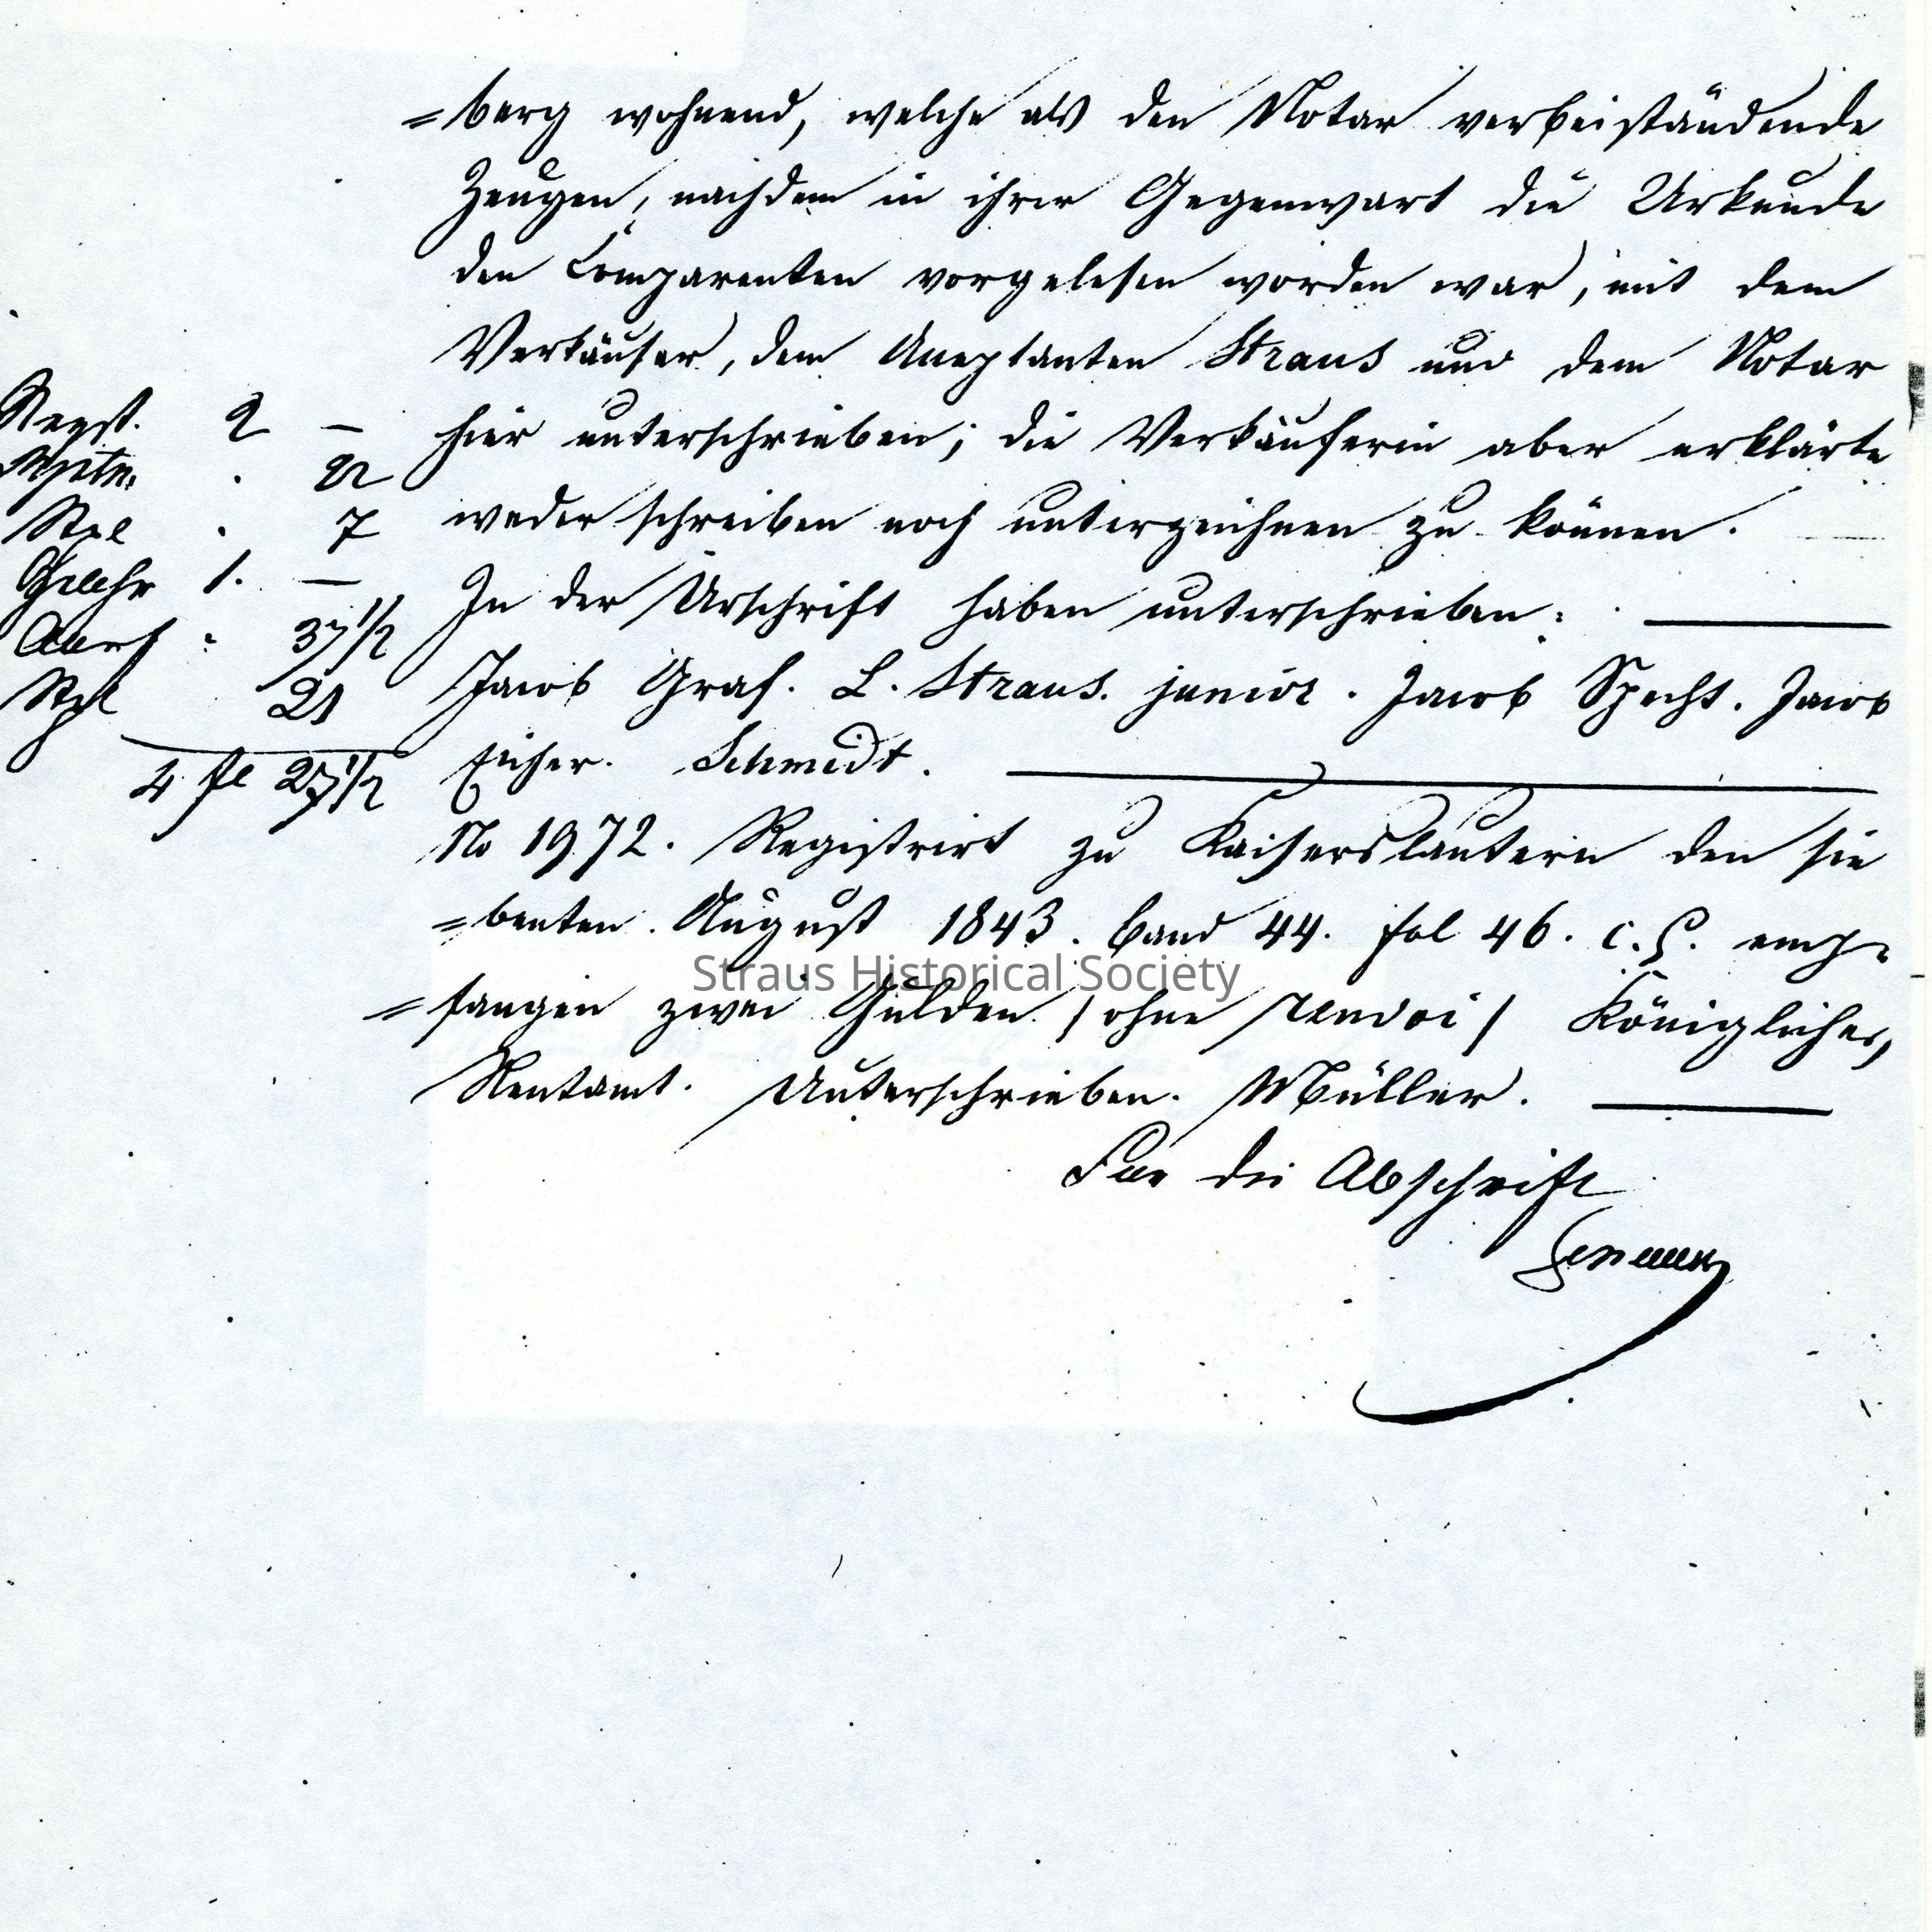 =berg wohnend, welche als den Notar verbeiständende
Zeugen, nachdem in ihrer Gegenwart die Urkunde
den Comparenten vorgelesen worden war, mit dem
Verkäufer, dem Steiglanten Straus und dem Notar
hier unterschrieben; die Verkäuferin aber erklärte
weder schreiben noch unterzeichnen zu können.
In der Urschrift haben unterschrieben:
Jacob Graf. L. Straus. junior. Jacob Specht. Jacob
Eicher. Schmidt.
No 1972. Registrirt zu Kaiserslautern den sie
=benten August 1843. Band 44. fol 46. c. emp=
=fangen zwei Gulden /ohne renvoi/ Königliches
Rentamt. Unterschrieben. Müller.
Für die Abschrift
Regst. 2 —
Stpl . 7
Gebhr 1. —
37 1/2
Stpl 21
4 fl 27 1/2
Straus Historical Society